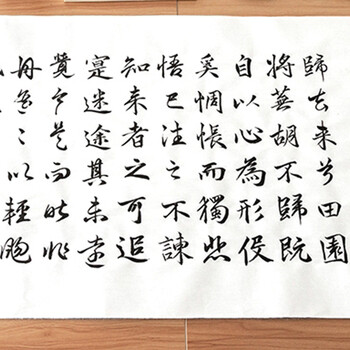 歸去来兮田園
将蕪胡不歸既
自以心為形役
奚惆悵而獨悲
悟已往之不諫
知来者之可追
寔迷途其未遠
覺今是而昨非
舟遥〻以輕颺